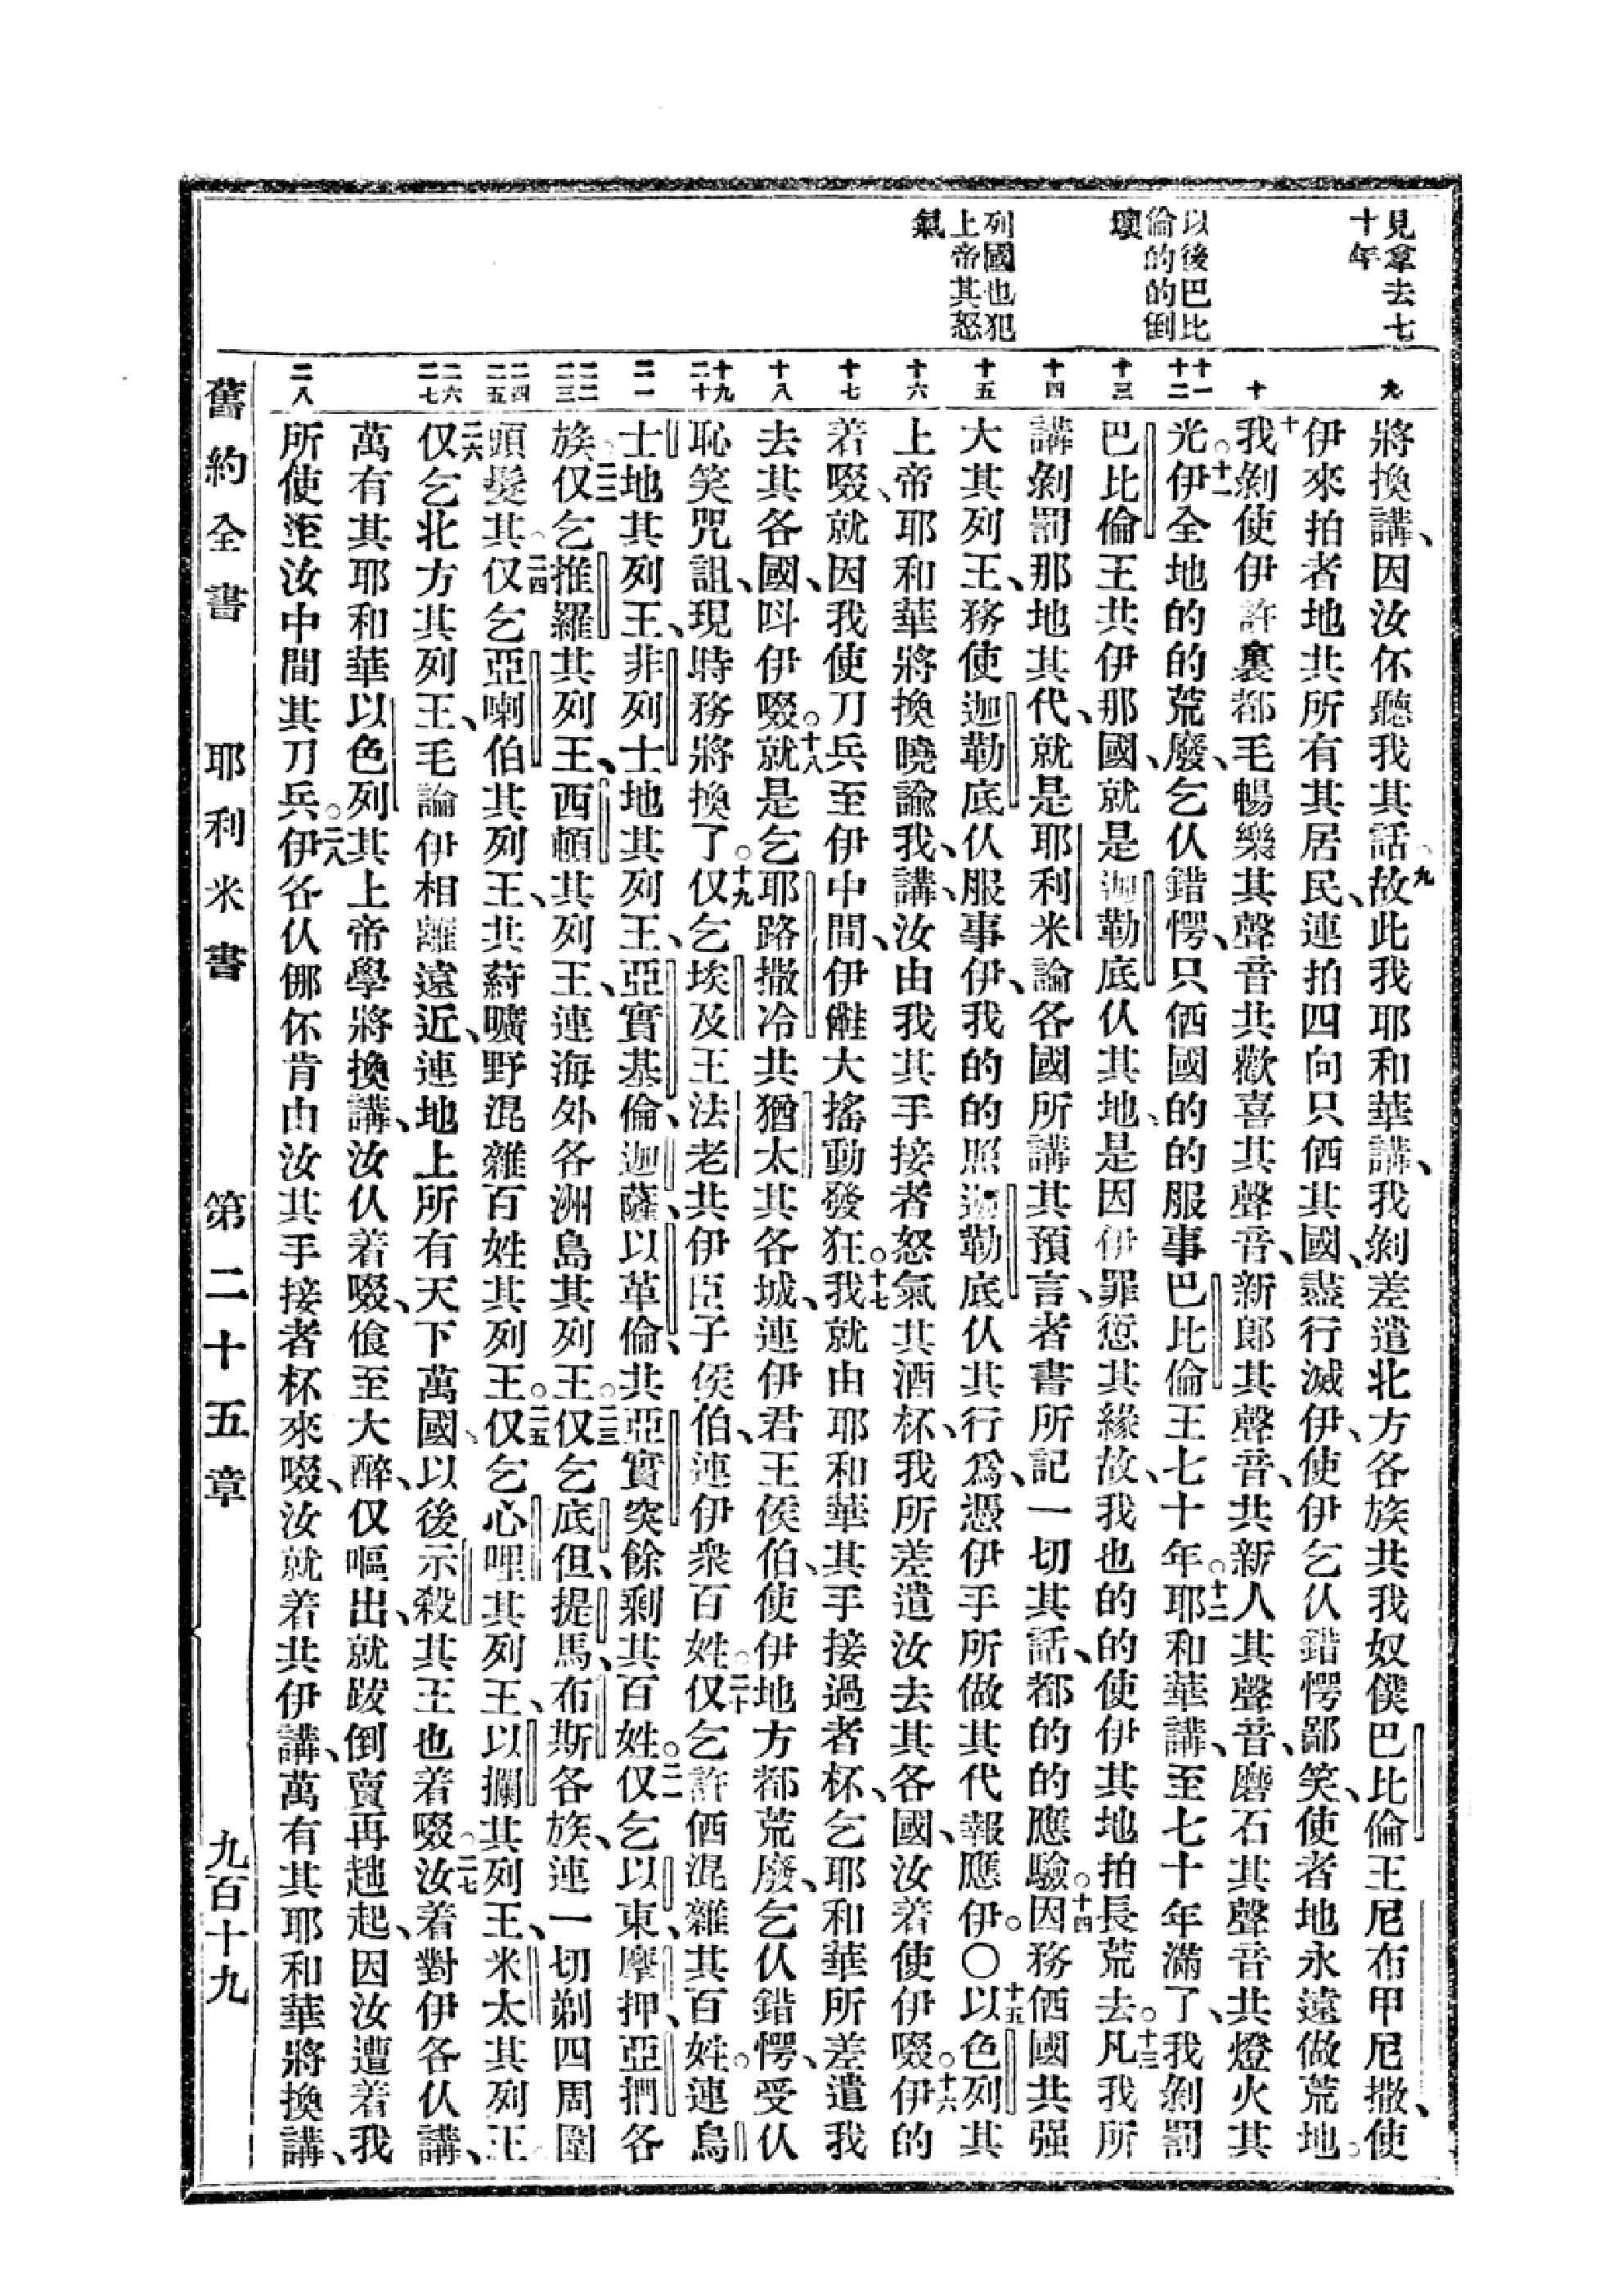 見拿去七
十年
以後巴比
倫的的倒
壞
列國也犯
上帝其怒
氣
九
十
十一
十二
十三
十四
十五
十六
十七
十八
十九
二十
二一
二二
二三
二四
二五
二六
二七
二八
將換講、因汝伓聽我其話。九故此我耶和華講、我剝差遣北方各族共我奴僕巴比倫王尼布甲尼撒、使
伊來拍者地共所有其居民、連拍四向只仴其國、盡行滅伊、使伊乞仈錯愕鄙笑、使者地永遠做荒地。
十我剝使伊許裏都毛暢樂其聲音共歡喜其聲音、新郎其聲音、共新人其聲音、磨石其聲音共燈火其
光。十一伊全地的的荒廢、乞仈錯愕、只仴國的的服事巴比倫王七十年。十二耶和華講、至七十年滿了、我剝罰
巴比倫王共伊那國、就是迦勒底仈其地、是因伊罪愆其緣故、我也的的使伊其地拍長荒去。十三凡我所
講剝罰那地其代、就是耶利米論各國所講其預言、者書所記一切其話、都的的應驗。十四因務仴國共强
大其列王、務使迦勒底仈服事伊、我的的照迦勒底仈其行爲、憑伊手所做其代報應伊。○十五以色列其
上帝耶和華將換曉諭我、講、汝由我其手接者怒氣其酒杯、我所差遣汝去其各國、汝着使伊啜。十六伊的
着啜、就因我使刀兵至伊中間、伊儺大搖動發狂。十七我就由耶和華其手接過者杯、乞耶和華所差遣我
去其各國、呌伊啜。十八就是乞耶路撒冷共猶太其各城、連伊君王侯伯、使伊地方都荒廢、乞仈錯愕、受仈
恥笑咒詛、現時務將換了。十九仅乞埃及王法老共伊臣子侯伯、連伊衆百姓。二十仅乞許仴混雜其百姓。連烏
士地其列王、非列士地其列王、亞實基倫、迦薩、以革倫、共亞實突餘剩其百姓。二一仅乞以東、摩押、亞捫各
族。二二仅乞推羅其列王、西頓其列王、連海外各洲島其列王。二三仅乞底但、提馬、布斯各族、連一切剃四周圍
頭髮其。二四仅乞亞喇伯其列王、共蒔曠野混雜百姓其列王。二五仅乞心哩其列王、以攔其列王、米太其列王。
二六仅乞北方其列王、毛論伊相離遠近、連地上所有天下萬國、以後示殺其王也着啜。二七汝着對伊各仈講、
萬有其耶和華以色列其上帝學將換講、汝仈着啜、飡至大醉、仅嘔出、就跋倒賣再趒起、因汝遭着我
所使至汝中間其刀兵。二八伊各仈倗伓肯由汝其手接者杯來啜、汝就着共伊講、萬有其耶和華將換講、
舊約全書 耶利米書 第二十五章 九百十九